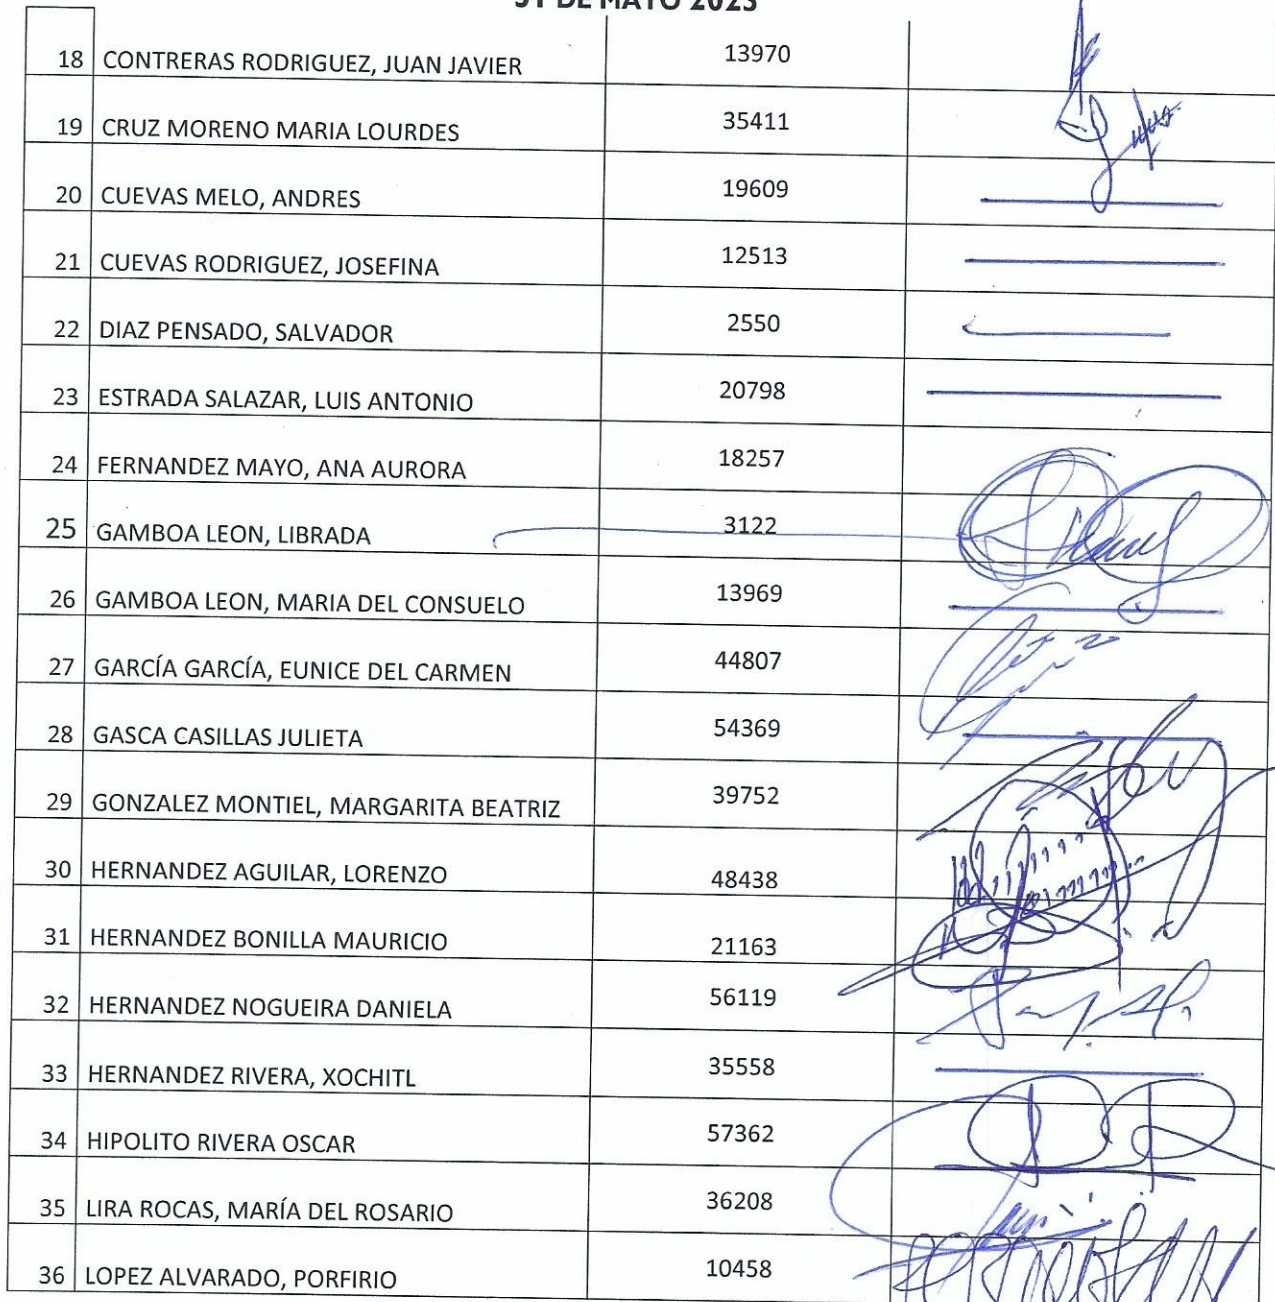 31 DE MAYO 2023
18 CONTRERAS RODRIGUEZ, JUAN JAVIER 13970
19 CRUZ MORENO MARIA LOURDES 35411
20 CUEVAS MELO, ANDRES 19609
21 CUEVAS RODRIGUEZ, JOSEFINA 12513
22 DIAZ PENSADO, SALVADOR 2550
23 ESTRADA SALAZAR, LUIS ANTONIO 20798
24 FERNANDEZ MAYO, ANA AURORA 18257
25 GAMBOA LEON, LIBRADA 3122
26 GAMBOA LEON, MARIA DEL CONSUELO 13969
27 GARCÍA GARCÍA, EUNICE DEL CARMEN 44807
28 GASCA CASILLAS JULIETA 54369
29 GONZALEZ MONTIEL, MARGARITA BEATRIZ 39752
30 HERNANDEZ AGUILAR, LORENZO 48438
31 HERNANDEZ BONILLA MAURICIO 21163
32 HERNANDEZ NOGUEIRA DANIELA 56119
33 HERNANDEZ RIVERA, XOCHITL 35558
34 HIPOLITO RIVERA OSCAR 57362
35 LIRA ROCAS, MARÍA DEL ROSARIO 36208
36 LOPEZ ALVARADO, PORFIRIO 10458